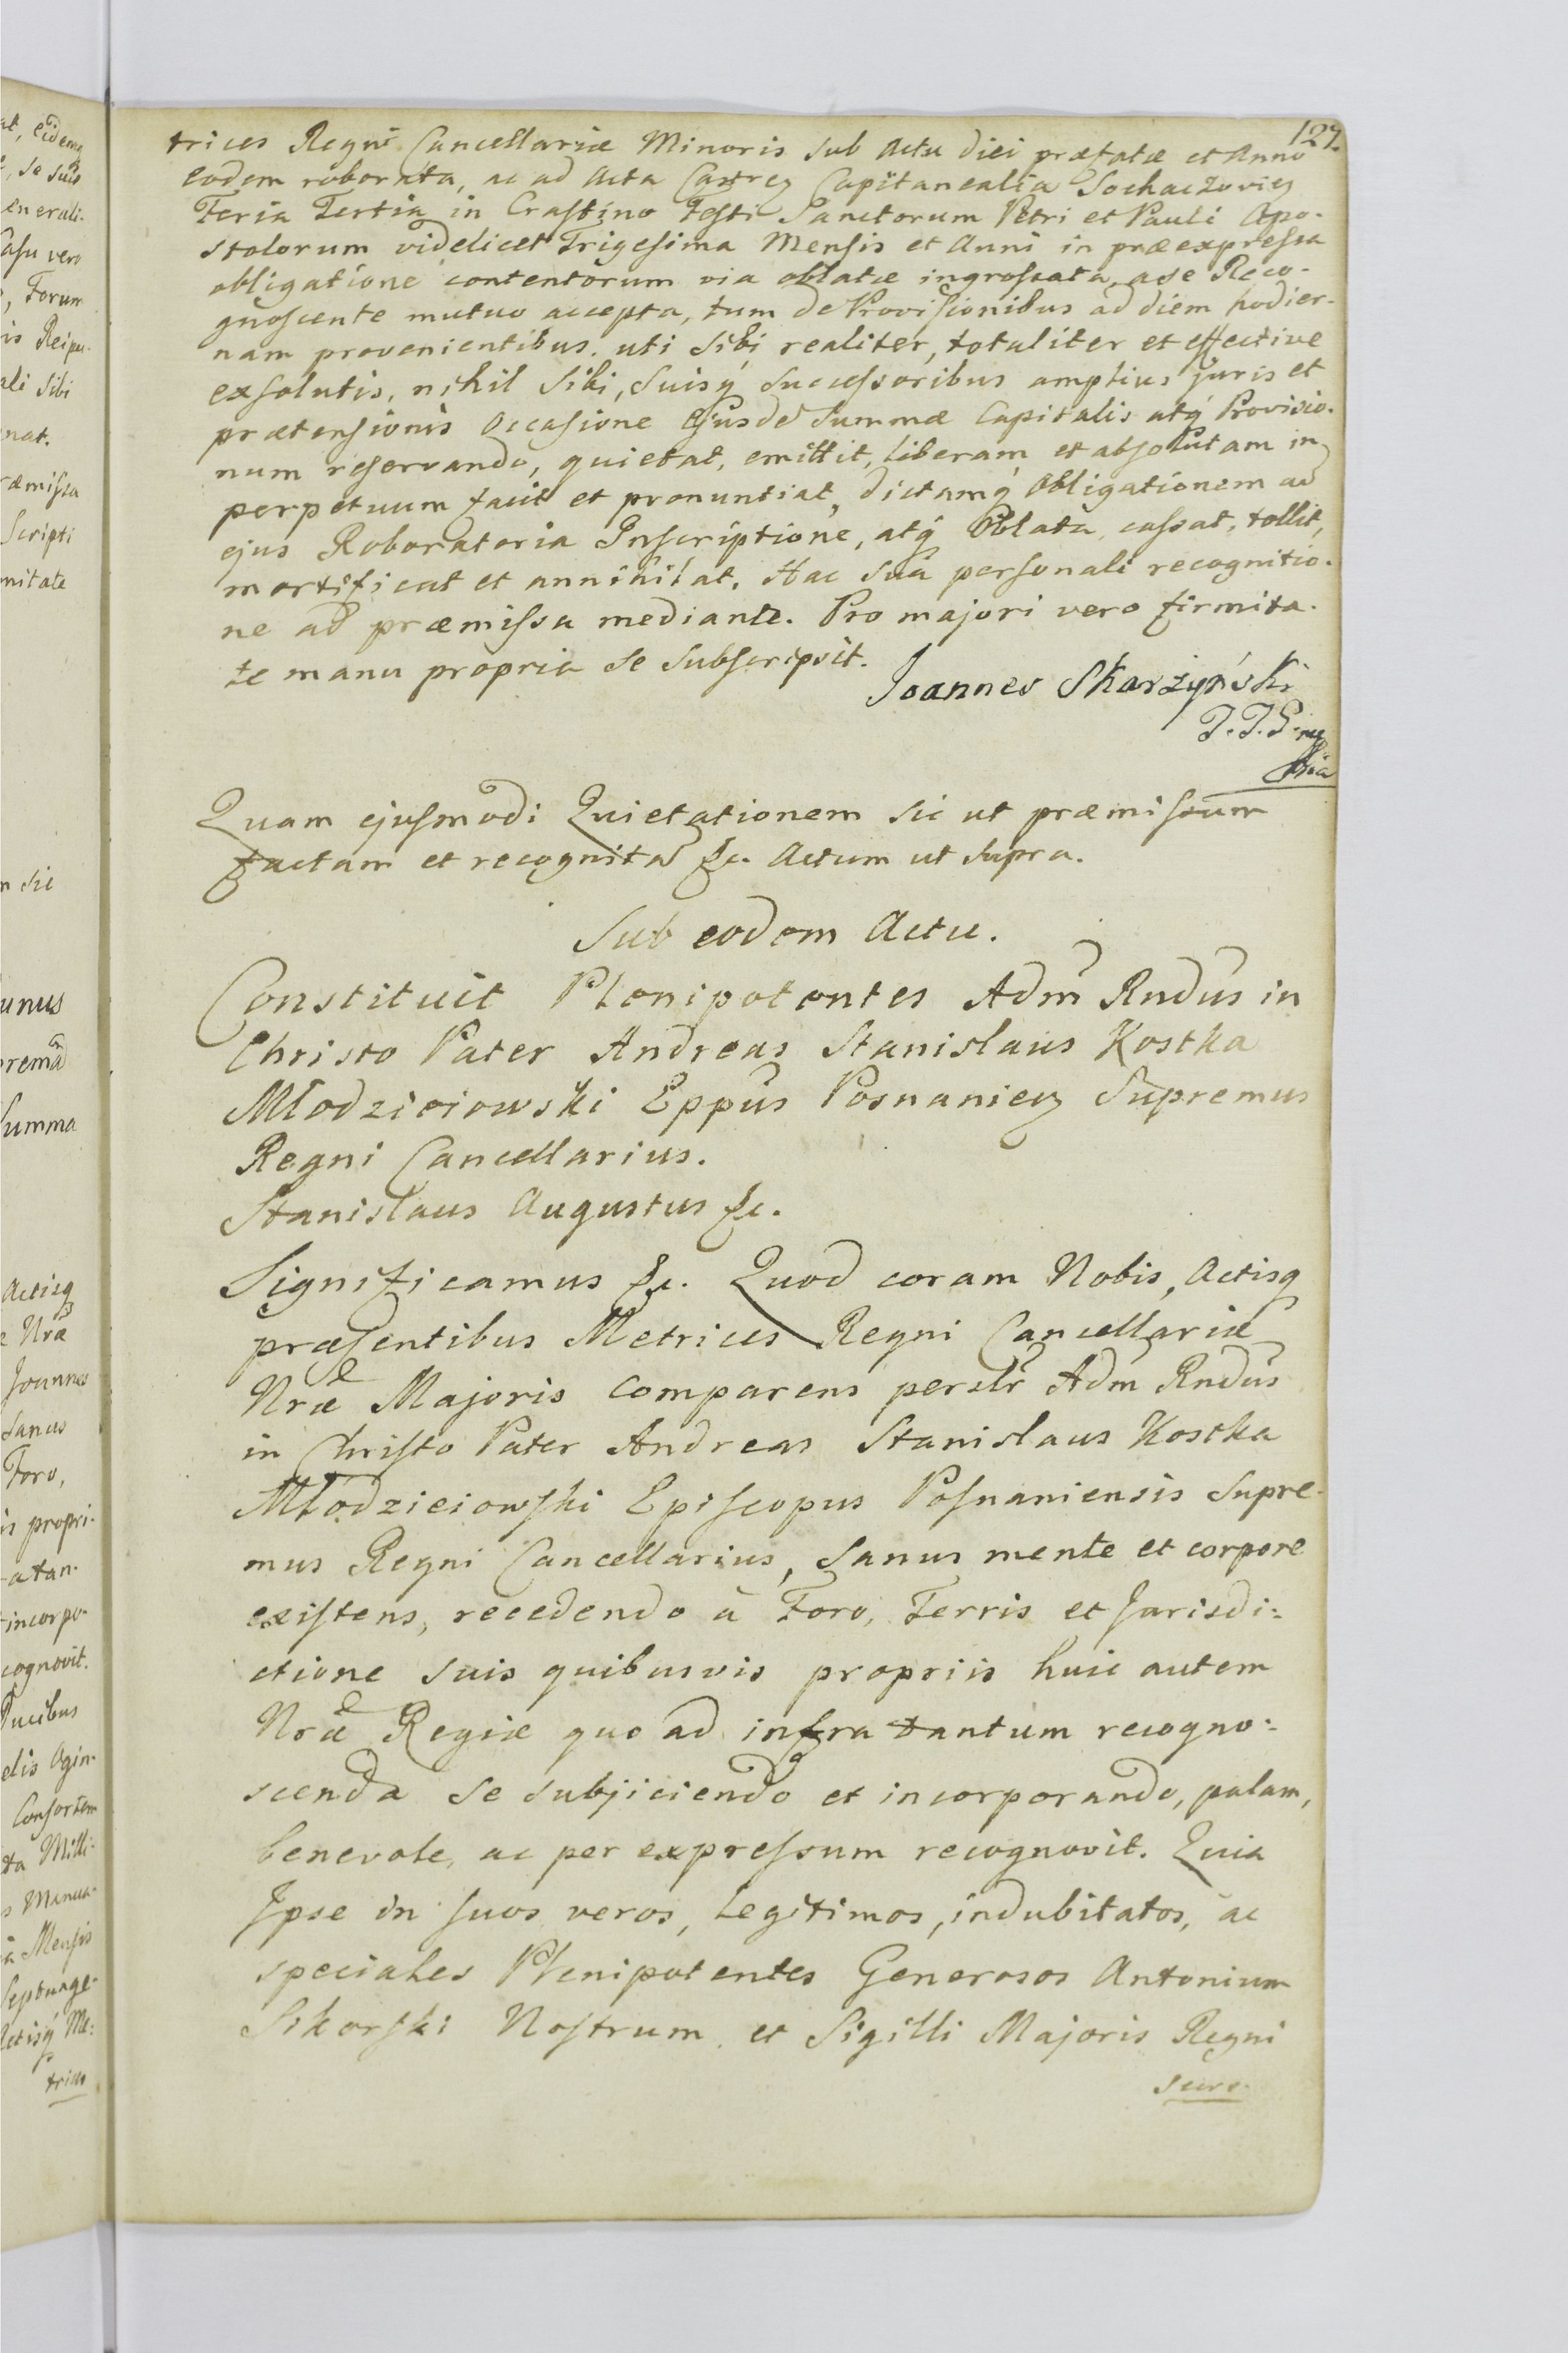 127.
trices Regni Cancellariæ Minoris sub Actu diei præfatæ et Anno
eodem roborata, ac ad Acta Castren Capitanealia Sochaczovien
Feria Tertia in Crastino Festi Sanctorum Petri et Pauli Apo-
stolorum videlicet Trigesima Mensis et Anni in præexpressa
obligatione contentorum via oblatæ ingrossata, a se Reco-
gnoscente mutuo accepta, tum de Provisionibus ad diem hodier-
nam provenientibus, uti sibi realiter, totaliter et effective
exsolutis, nihil sibi, suisq́ successoribus amplius juris et
prætensionis occasione ejusdẽ Summæ Capitalis atq́ Provisio-
num reservando, quietat, emittit, liberam et absolutam in
perpetuum facit et pronuntiat, dictamq́ Obligationem ac
ejus Roboratoria Inscriptione, atq́ Oblata, cassat, tollit,
mortificat et annihilat. Hac sua personali recognitio-
ne ad præmissa mediante. Pro majori vero firmita-
te manu propria se subscripsit.
Joannes Skarżyński
Quam ejusmodi Quietationem sic ut præmissum
factam et recognitã &c. Actum ut supra.
Sub eodem Actu.
Constituit Plenipotentes Adm̃ Rndũs in
Christo Pater Andreas Stanislaus Kostka
Młodzieiowski Eppũs Posnanien Supremus
Regni Cancellarius.
Stanislaus Augustus &c.
Significamus &c. Quod coram Nobis, Actisq
præsentibus Metrices Regni Cancellariæ
Nræ Majoris comparens persłr Adm̃ Rndũs
in Christo Pater Andreas Stanislaus Kostka
Młodzieiowski Episcopus Posnaniensis Supre-
mus Regni Cancellarius, sanus mente et corpore
existens, recedendo à Foro, Terris et Jurisdi-
ctione suis quibusvis propriis huic autem
Nræ Regiæ quo ad infra tantum recogno-
scenda se subjiciendo et incorporando, palam,
benevole, ac per expressum recognovit. Quia
Ipse in suos veros, legitimos, indubitatos, ac
speciales Plenipotentes Generosos Antonium
Sikorski Nostrum et Sigilli Majoris Regni
Secre-